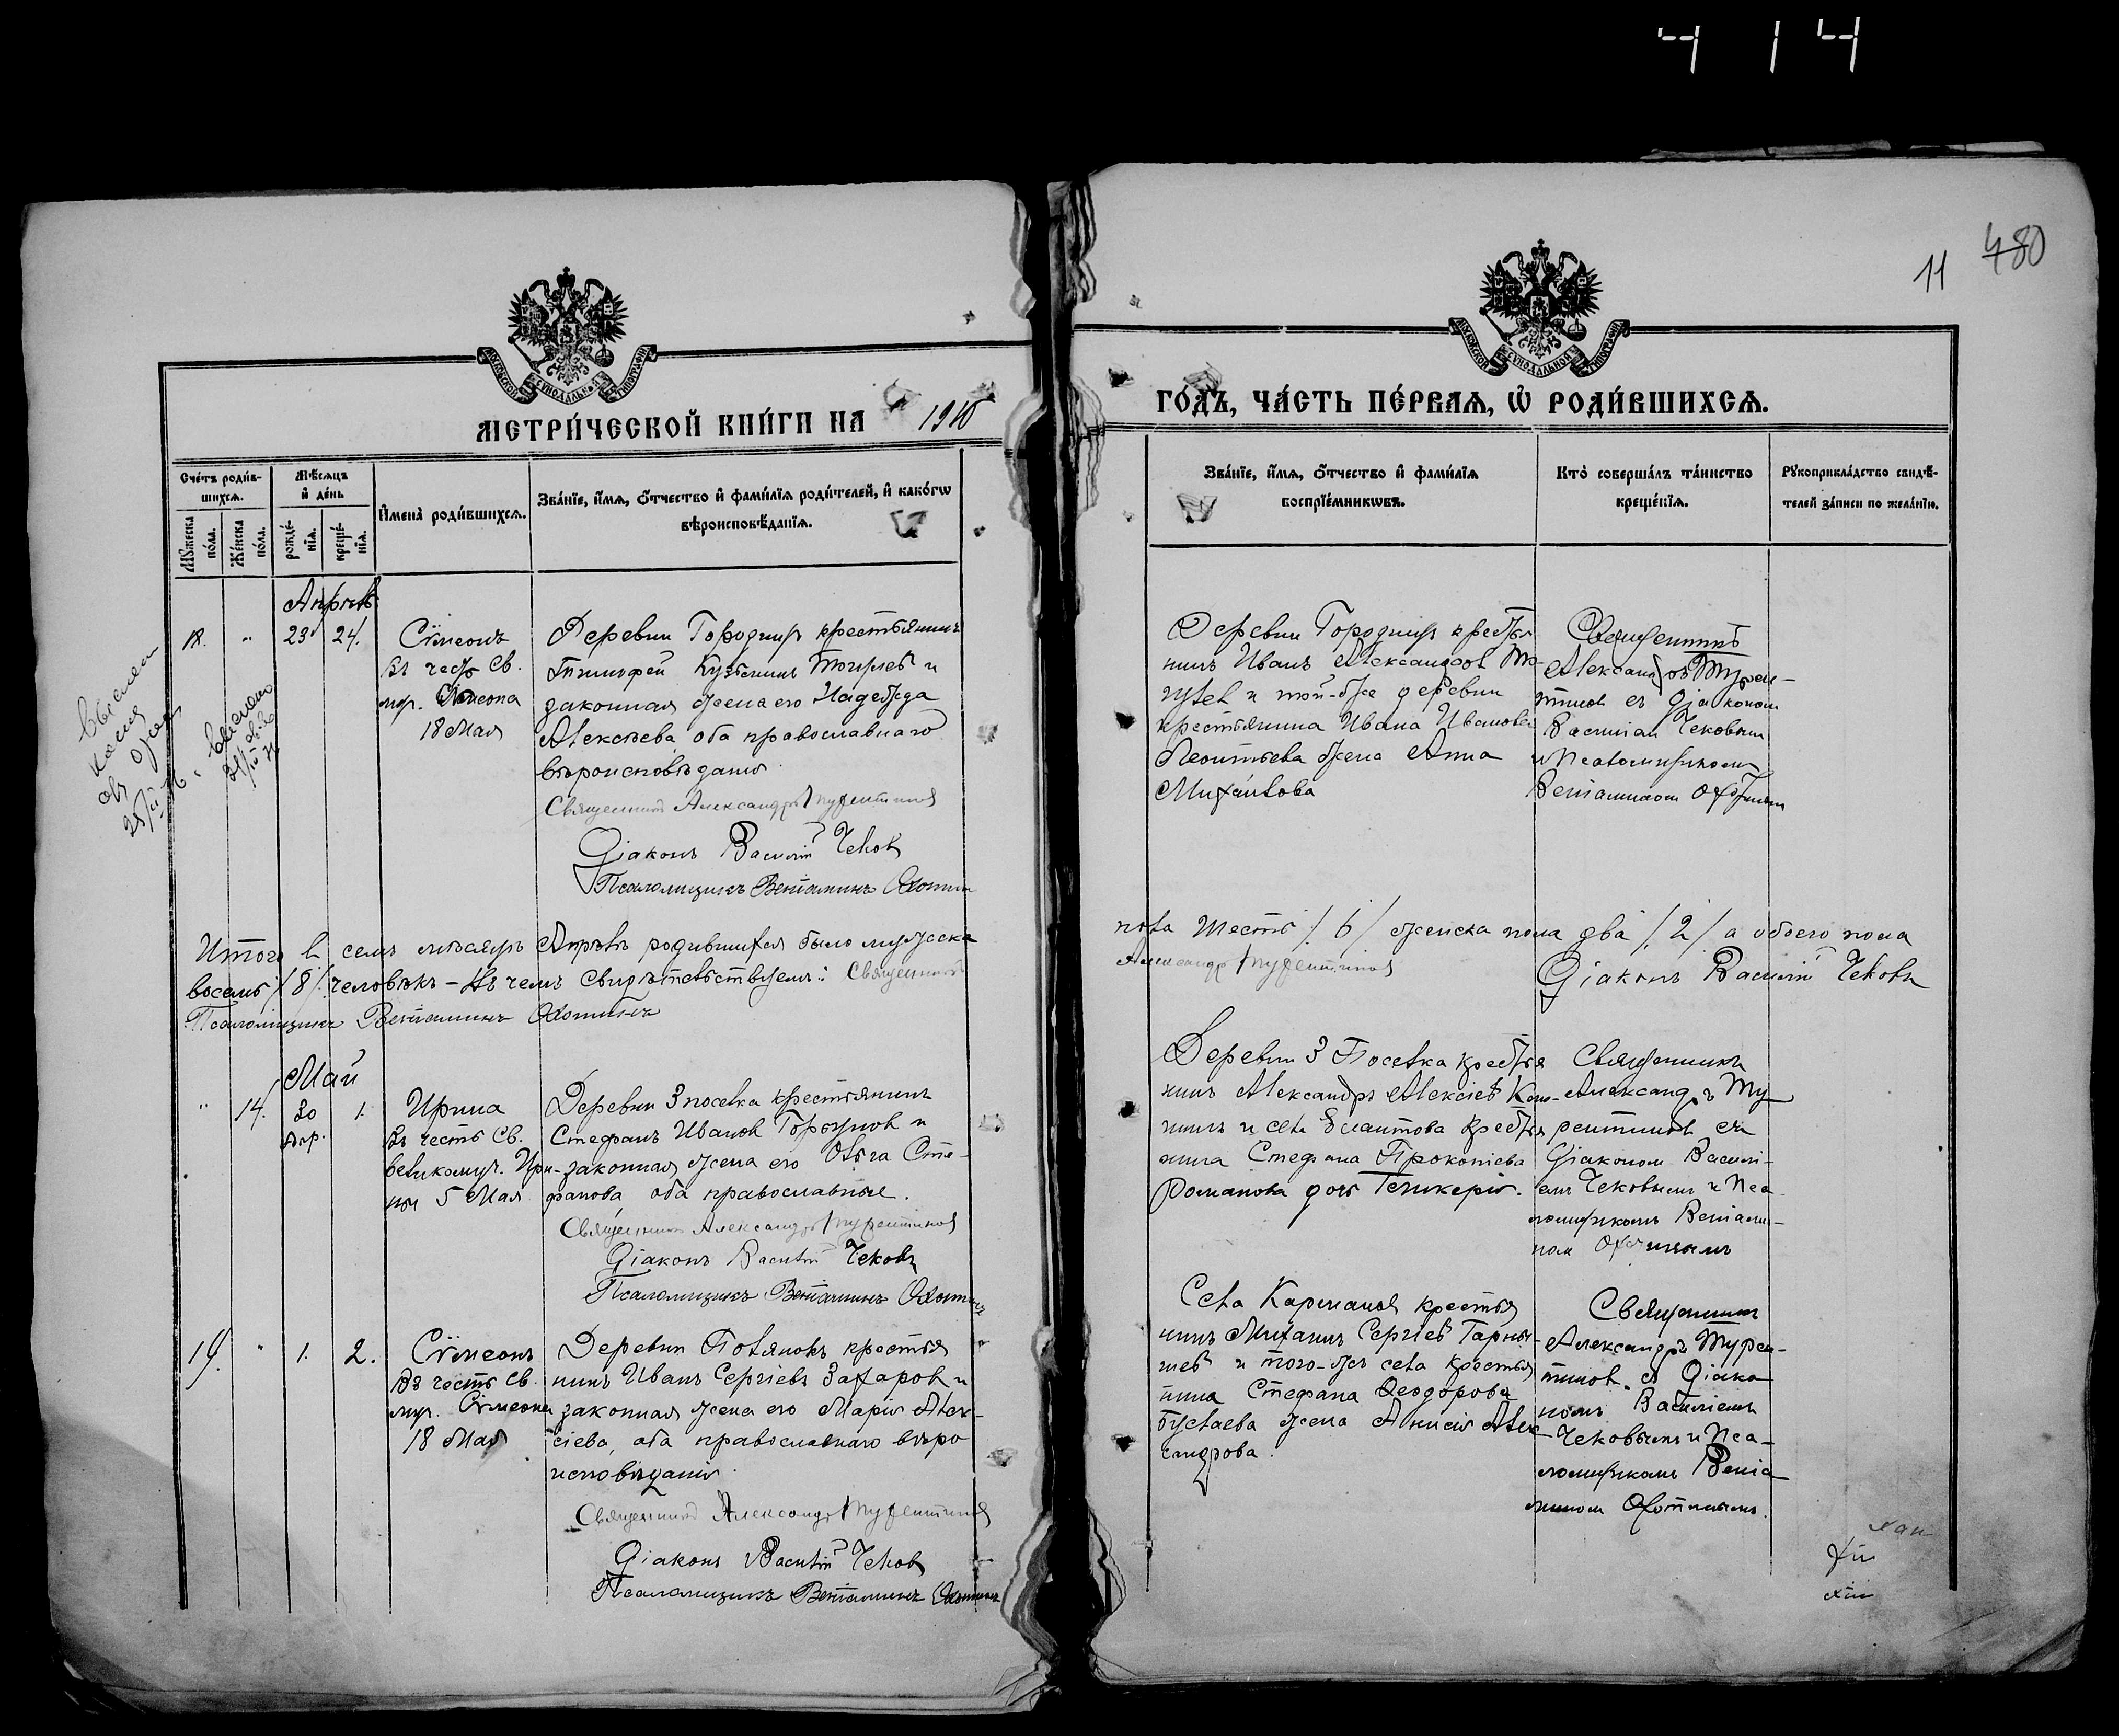 11 480
МЕТРИ́ЧЕСКОЙ КНИ́ГИ НА 1910
ГО́ДЪ, ЧА́СТЬ ПЕ́РВАѦ, Ѿ РОДИ́ВШИХСѦ.
Сче́тъ роди́в-
шихсѧ.
Мѣ́сѧцъ
и҆ де́нь
Мꙋ́жеска
по́ла.
Же́нска
по́ла.
рожде́-
нїѧ.
креще́-
нїѧ.
И҆мена̀ роди́вшихсѧ.
Зва́нїе, и҆́мѧ, ѻ҆́тчество и҆ фами́лїѧ роди́телей, и҆ како́гѡ
вѣроисповѣ́данїѧ.
Зва́нїе, и҆́мѧ, ѻ҆́тчество и҆ фами́лїѧ
воспрїе́мникѡвъ.
Кто̀ соверша́лъ та́инство
креще́нїѧ.
Рꙋкоприкла́дство свидѣ́-
телей за́писи по жела́нїю.
Апрѣль
23 24.
Сѵмеонъ
въ честь Св.
мч. Сѵмеона
18 Мая
крестьянинъ
Тимофей Кузьминъ и
законная жена его Надежда
Алексѣева, оба православнаго
вѣроисповѣданія.
Священникъ Александръ Турентиновъ
Діаконъ Василій Чековъ
Псаломщикъ Веніаминъ Охотинъ
Деревни крестья-
нинъ Иванъ Александровъ
и той-же деревни
крестьянина Ивана Иванова
Леонтьева жена Анна
Михайлова
Священникъ
Александръ Турен-
тиновъ съ Діакономъ
Василіемъ Чековымъ
и Псаломщикомъ
Веніаминомъ Охотинымъ
Итого в семъ мѣсяцѣ Апрѣлѣ родившихся было мужеска
пола шесть /6/ женска пола два /2/ а обоего пола
восемь /8/ человѣкъ – Въ чемъ свидѣтельствуемъ: Священникъ
Александръ Турентиновъ
Діаконъ Василій Чековъ
Псаломщикъ Веніаминъ Охотинъ
Май
" 14. 30 1.
Апр.
Ирина
въ честь Св.
великомуч. Ири-
ны 5 Мая
Деревни 3 поселка крестьянинъ
Стефанъ Ивановъ Горбуновъ и
законная жена его Ольга Сте-
фанова оба православные.
Священникъ Александръ Турентиновъ
Діаконъ Василій Чековъ
Псаломщикъ Веніаминъ Охотинъ
Деревни 3 Поселка крестья
нинъ Александръ Алексіевъ
нинъ и села крестья
нина Стефана Прокопіева
Романова дочь Гликерія.
Священникъ
Александръ Ту-
рентиновъ съ
Діакономъ Васили-
емъ Чековымъ и Пса-
ломщикомъ Веніами-
номъ Охотинымъ
19. " 1. 2.
Сѵмеонъ
въ честь Св.
муч. Сѵмеона
18 Мая
Деревни Полянокъ крестья
нинъ Иванъ Сергіевъ Захаровъ и
законная жена его Марія Алек-
сіева, оба православнаго вѣро
исповѣданія.
Священникъ Александръ Турентиновъ
Діаконъ Василій Чековъ
Псаломщикъ Веніаминъ Охотинъ
Села крестья
нинъ Михаилъ Сергіевъ
и того-же села крестья
нина Стефана Ѳеодорова
жена Анисія Алек-
сандрова.
Священникъ
Александръ Турен-
тиновъ съ Діако
номъ Василіемъ
Чековымъ и Пса-
ломщикомъ Веніа
миномъ Охотинымъ.